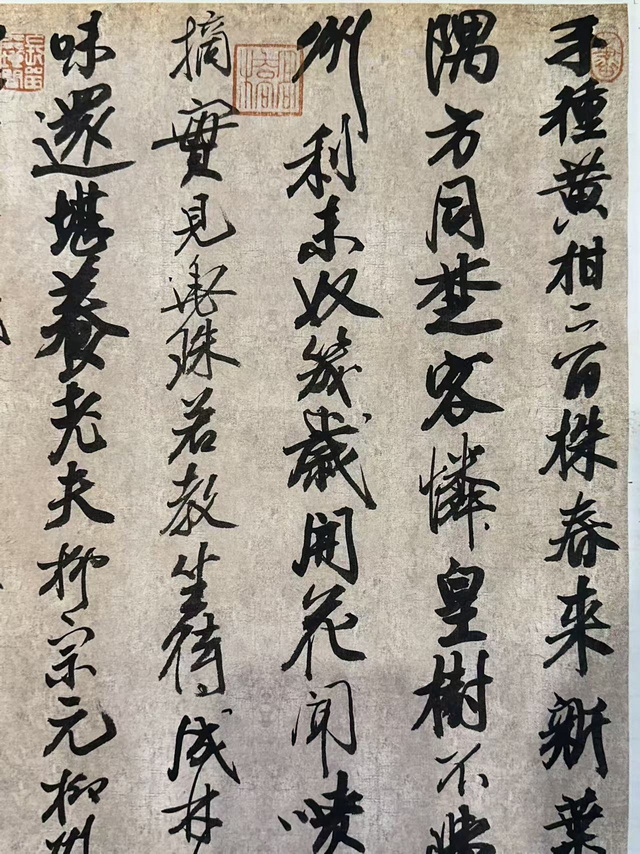 手種黃柑二百株春來新葉
隅方同楚客憐皇樹不
州利木奴幾歲開花聞噴
摘實見垂珠若教坐待成林
味還堪養老夫柳宗元柳州